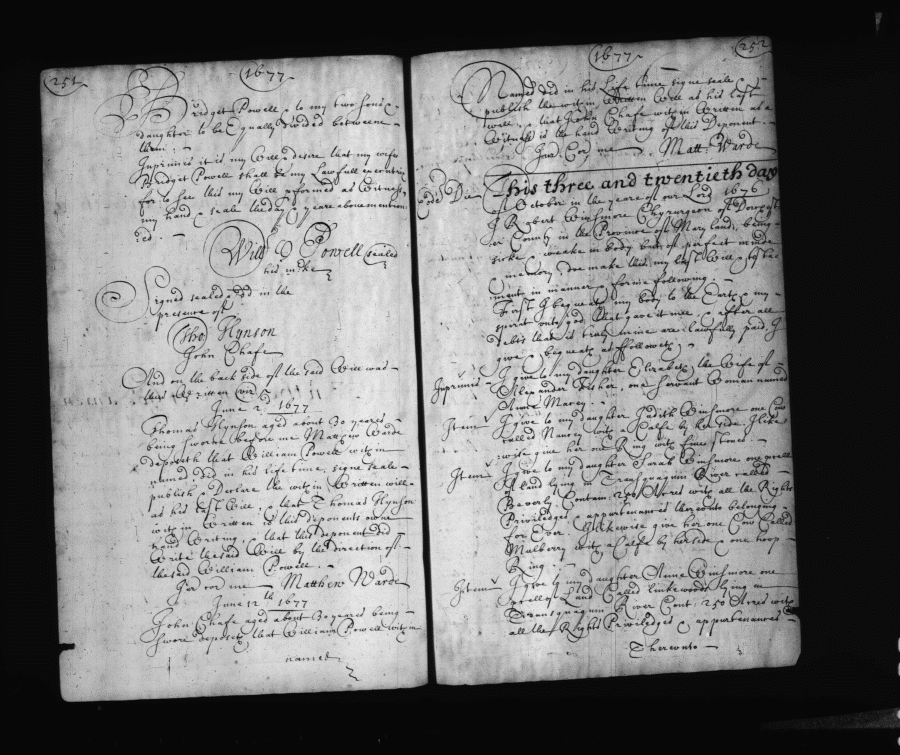 251
1677
Bridget Powell & to my two sons &
daughter to be Equally divided betweene
them.
Inprimis it is my Will & desire that my wife
Bridget Powell shall be my Lawfull executrix
for to see this my Will pformed as Witness
my hand & seale the day & yeare above mention
ed.
Will Powell sealed
his mke
Signed sealed & dd in the
presence of
Tho Hynson
John Chafe
And on the back side of the said Will was
thus written viz
June 2d 1677
Thomas Hynson aged about 30 yeares
being sworne before me Mathew Warde
deposeth that William Powell within
named did in his life time, signe seale
publish & Declare the wthin Written will
as his last Will, & that Thomas Hynson
wthin Written is this deponents owne
hand Writing, & that this deponent did
Write the said Will by the direction of
the said William Powell
Jur cor me Matthew Warde
June 12th 1677
John Chafe aged about 30 yeares being
sworne deposeth that William Powell wthin
named
1677
252
Named did in his Life time signe seale &
publish the wthin Written Will as his last
will, & that John Chafe wthin Written as a
Witness is the hand Writing of this Deponent.
Jurd Cor me Matt: Warde
Eodem Die
This three and twentieth day
of October in the yeare of our Lord 1676
I Robert Winsmore Chyrurgeon of Dorchest
er County in the Province of Maryland, being
sicke & weake in body but of perfect minde
& memory doe make this my last Will & testa
ment in manner & forme following
First I bequeath my body to the Earth & my
spirit unto god that gave it me, & after all
debts that is truly mine are lawfully paid, I
give & bequeath as followeth
Inprimis I give to my daughter Elizabeth the Wife of
Alexander Fisher, one servant Woman named
Anne Marey
Item I give to my daughter Judith Winsmore one Cow
called Nancy wth a Calfe by her side I like
wise give her one Ring wth five stones.
Item I give to my daughter Sarah Winsmore one prcell
of land lying in Transquaquin River called
Beverly Contain: 250 Acres wth all the Rights
Priviledges & appertenances thereunto belonging
for Ever. I likewise give her one Cow Called
Mulberry wth a Calfe by her side & one hoop
Ring.
Item I give to my daughter Anne Winsmore one
prcell of Land Called Linkewoods lying in
Transquaquin River Cont: 250 Acres wth
all the Rights Priviledges & appertenances
Thereunto